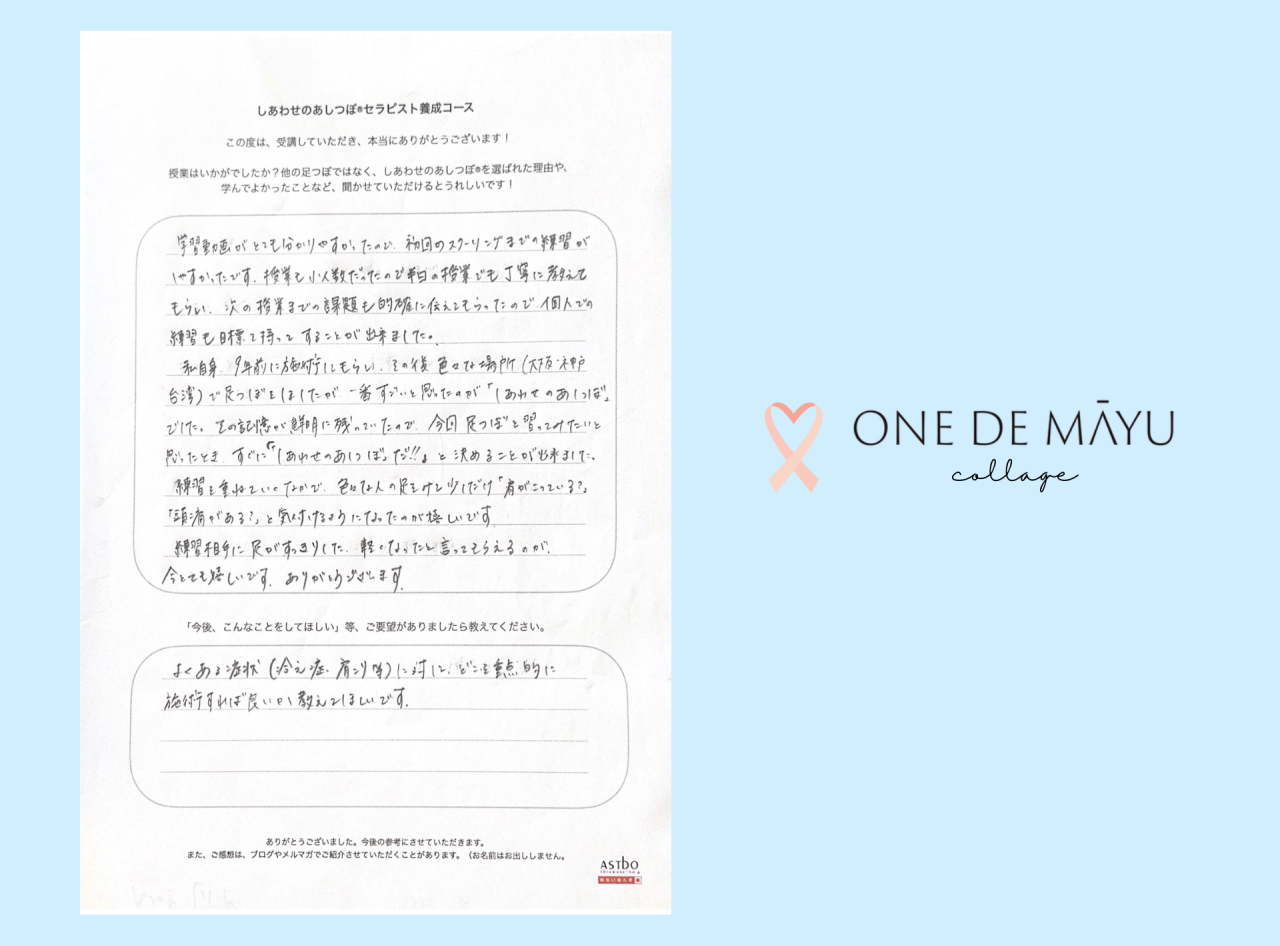 しあわせのあしつぼ®セラピスト養成コース
この度は、受講していただき、本当にありがとうございます！
授業はいかがでしたか？他の足つぼではなく、しあわせのあしつぼ®を選ばれた理由や、
学んでよかったことなど、聞かせていただけるとうれしいです！
学習動画がとても分かりやすかったので、初回のスクーリングまでの練習が
しやすかったです。授業も小人数だったので毎日の授業でも丁寧に教えて
もらい、次の授業までの課題も的確に伝えてもらったので、個人での
練習も目標を持ってすることが出来ました。
私自身、9年前に施術してもらい、その後色々な場所（大阪・神戸
台湾）で足つぼをしましたが、一番すごいと思ったのが「しあわせのあしつぼ」
でした。その記憶が鮮明に残っていたので、今回足つぼを習ってみたいと
思ったとき、すぐに『「しあわせのあしつぼ」だ!!』と決めることが出来ました。
練習を重ねていくなかで、色々な人の足をみて少しだけ「肩がこっている?」
「頭痛がある?」と気付けるようになったのが嬉しいです。
練習相手に足がすっきりした、軽くなったと言ってもらえるのが、
今とても嬉しいです。ありがとうございます。
「今後、こんなことをしてほしい」等、ご要望がありましたら教えてください。
よくある症状（冷え症、肩こり等）に対して、どこを重点的に
施術すれば良いか教えてほしいです。
ありがとうございました。今後の参考にさせていただきます。
また、ご感想は、ブログやメルマガでご紹介させていただくことがあります。（お名前はお出ししません。
ASTbO
ONE DE MĀYU
collage